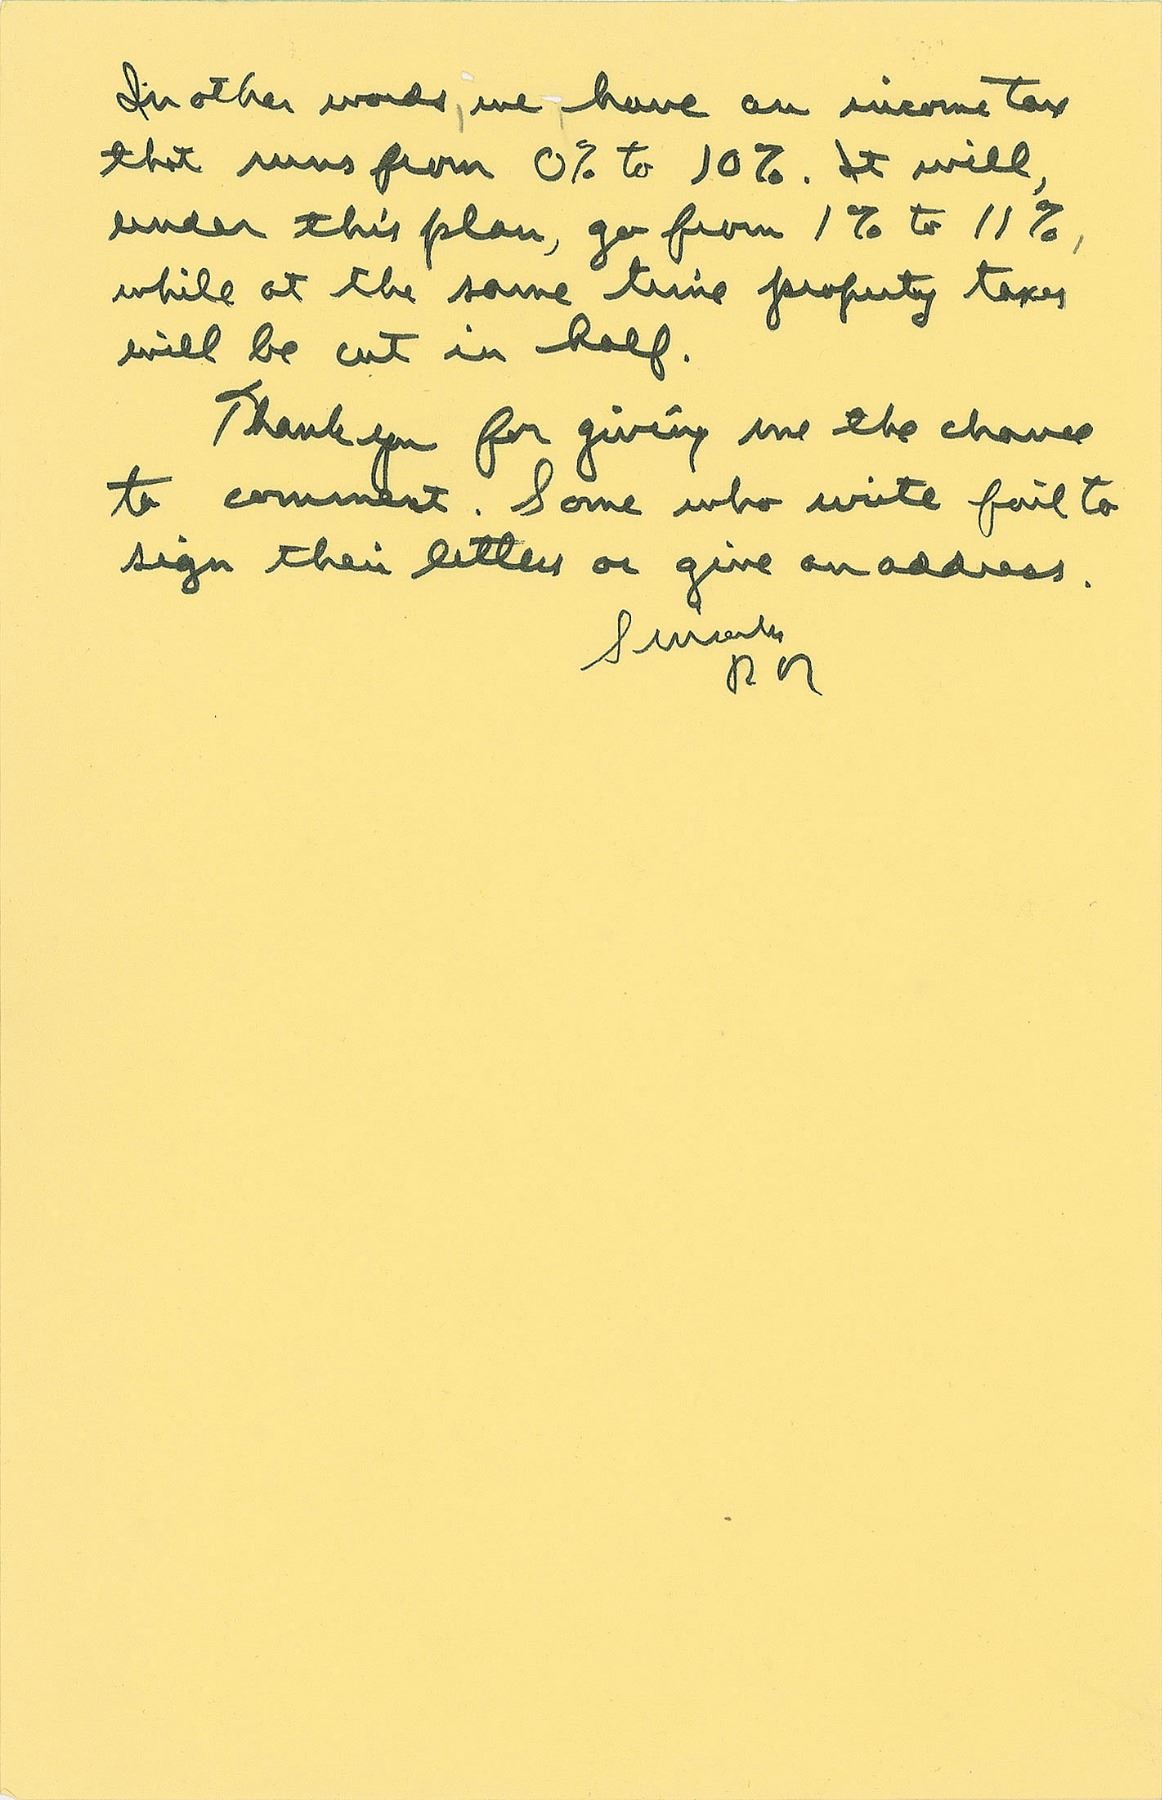 In other words, we have an income tax
that runs from 0% to 10%. It will,
under this plan, go from 1% to 11%,
while at the same time property taxes
will be cut in half.
Thank you for giving me the chance
to comment. Some who write fail to
sign their letters or give an address.
Sincerely
RR